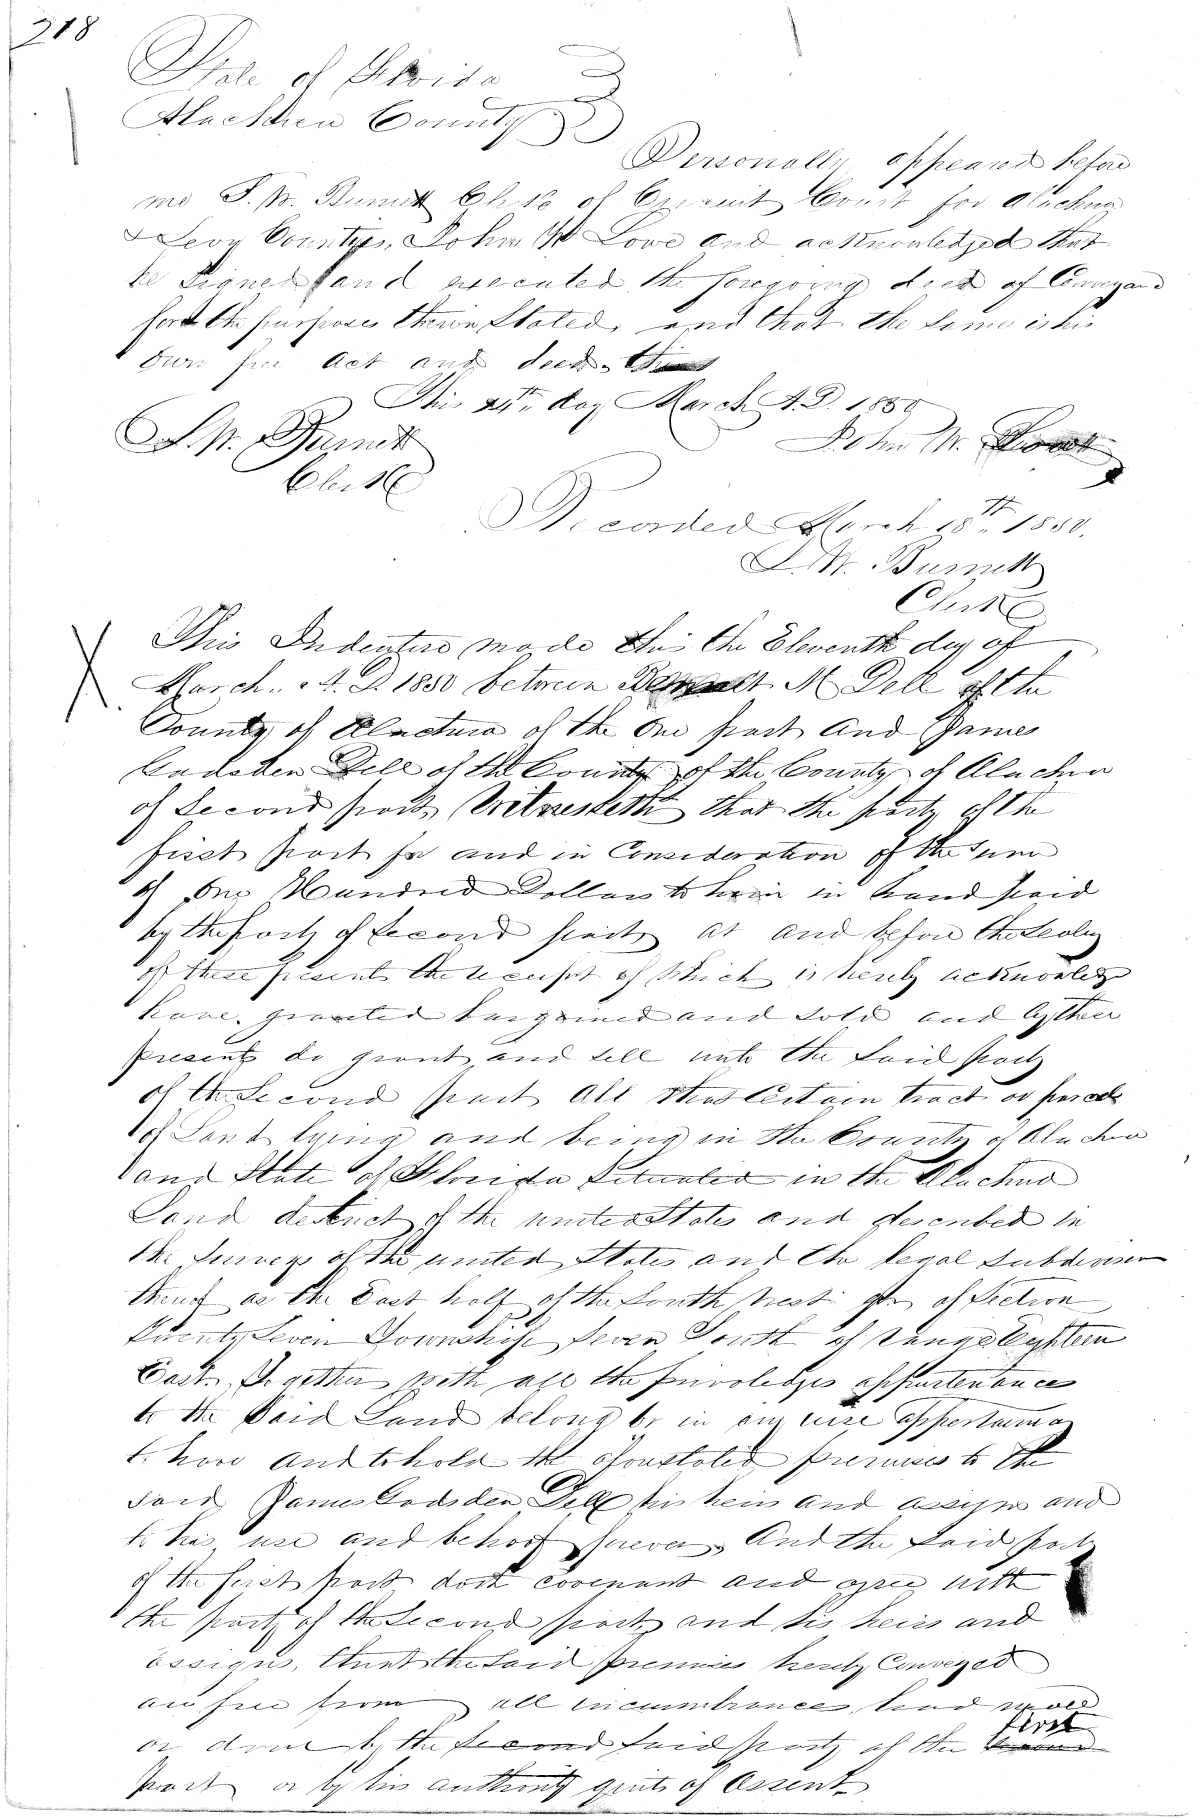 218
State of Florida
Alachua County
Personally appeared before
me S. W. Burnett Clerk of Circuit Court for Alachua
& Levy Counties, John W Love and acknowledged that
he signed and executed the foregoing deed of Conveyance
for the purposes therein Stated, and that the same is his
own free act and deed.
This day March A.D. 1850
S. W. Burnett
Clerk
John W. Love
Recorded March 18th 1850.
S. W. Burnett
Clerk
This Indenture made this the Eleventh day of
March A. D. 1850 between M Dell of the
County of Alachua of the one part and James
Gadsden Dell of the County of the County of Alachua
of Second part, Witnesseth that the party of the
first part for and in Consideration of the sum
of One Hundred Dollars to him in hand paid
by the party of second part at and before the
of these presents the receipt of which is hereby
have granted bargained and sold and by these
presents do grant and sell unto the said party
of the Second part All that Certain tract or parcel
of Land lying and being in the County of Alachua
and State of Florida Situated in the Alachua
Land district of the united States and described in
the Surveys of the united States and the legal Subdivision
thereof as the East half of the South West qr of Section
twenty Seven Township Seven South of range Eighteen
East. Together with all the priviledges appurtenances
to the Said Land belong or in any wise appertaining
to have and to hold the premises to the
said James Gadsden Dell his heirs and assigns and
to his use and behoof forever, And the said party
of the first part doth covenant and agree with
the party of the Second part and his heirs and
assigns, that the said premises hereby Conveyed
are free from all incumbrances had
or done by the Second said party of the first
part or by his authority of Assent.